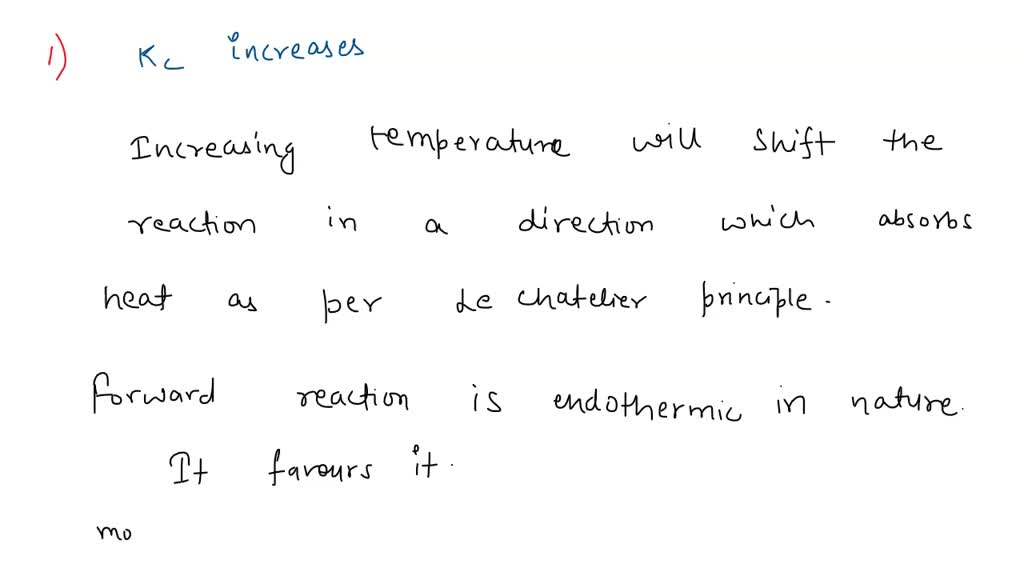 1) Kc increases
Increasing temperature will shift the
reaction in a direction which absorbs
heat as per Le chatelier principle.
Forward reaction is endothermic in nature.
It favours it.
mo